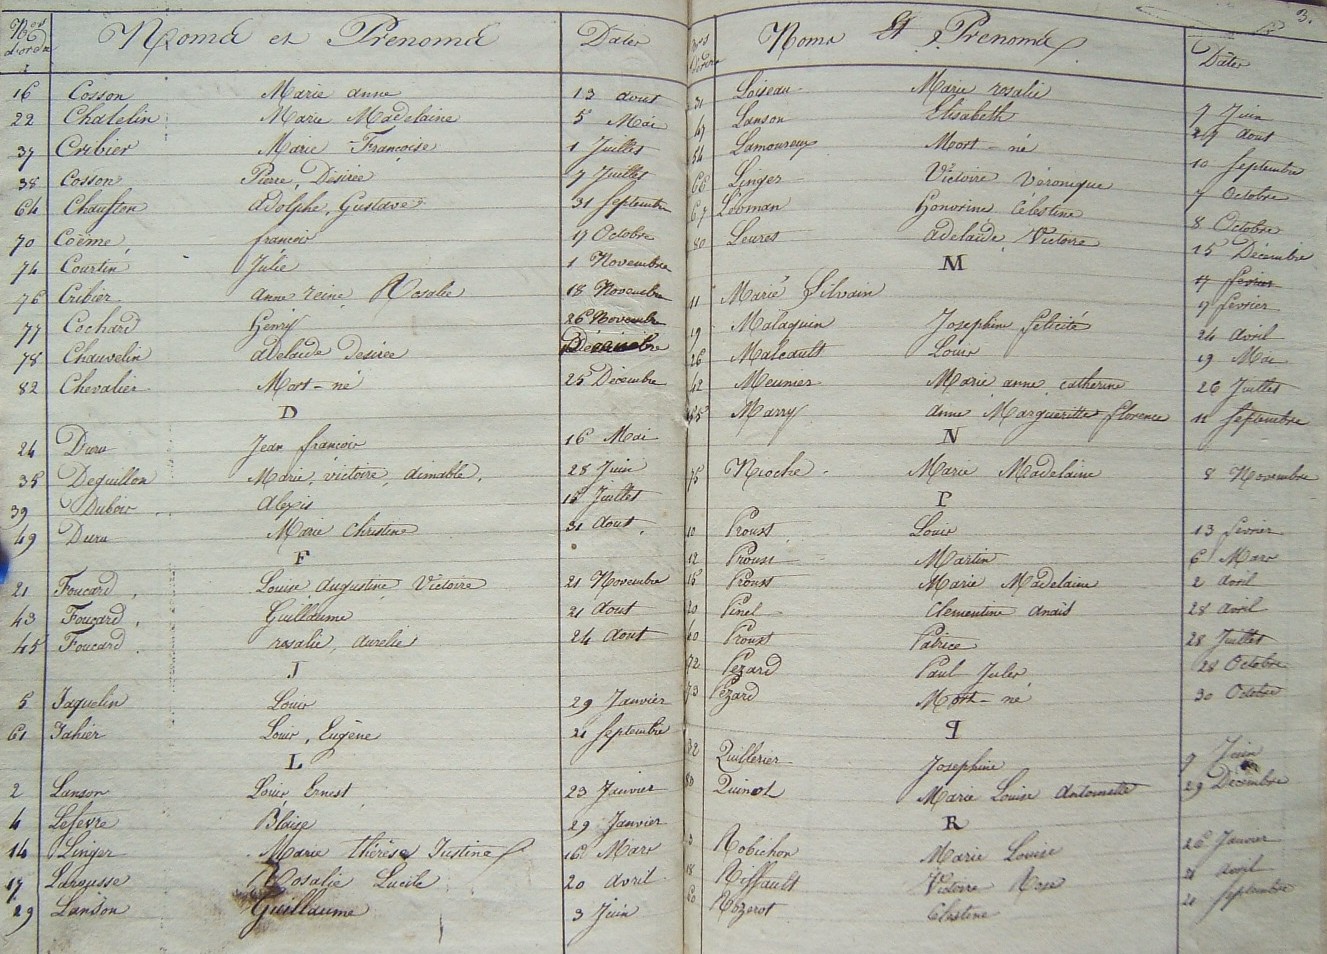 Nos d'ordre Noms et Prenoms Dates
16 Cosson Marie anne 13 aout
22 Chatelin Marie Madelaine 5 Mai
37 Cribier Marie Françoise 1 Juillet
38 Cosson Pierre, Désirée 7 Juillet
64 Chaufton adolphe, Gustave 31 Septembre
70 Coëme, francois 17 Octobre
74 Courtin Julie 1 Novembre
76 Cribier anne reine Rosalie 18 Novembre
77 Cochard Henry 26 Novembre
78 Chauvelin adelaide Desirée Décembre
82 Chevalier Mort-né 25 Décembre
D
24 Duru Jean francois 16 Mai
35 Deguillon Marie, victoire, aimable, 28 Juin
39 Dubois Alexis 15 Juillet
49 Duru Marie Christine 31 Aout
F
21 Foucard, Louise augustine Victoire 21 Novembre
43 Foucard, Guillaume 21 aout
45 Foucard rosalie, aurelie 24 aout
J
5 Jaquelin Louis 29 Janvier
61 Jahier Louis, Eugène 21 Septembre
L
2 Lanson Louis Ernest 23 Janvier
4 Lefevre Blaise 29 Janvier
14 Linger Marie thérèse Justine 16 Mars
17 Larousse Rosalie Lucile 20 avril
29 Lanson Guillaume 3 Juin
3.
Noms Et Prenoms Dates
31 Loiseau Marie rosalie 7 Juin
47 Lanson Elisabeth 27 aout
54 Lamoureux Mort-né 10 Septembre
66 Linger Victoire Véronique 7 Octobre
67 Lebman honorine Celestine 8 Octobre
80 Leures adelaide Victoire 15 Décembre
M
17 fevrier
11 Marie Silvain 17 fevrier
19 Malaquin Josephine felicité 24 avril
26 Maleault Louis 19 Mai
42 Meunier Marie anne catherine 26 Juillet
55 Marry anne Margueritte florence 11 Septembre
N
75 Nioche Marie Madelaine 8 Novembre
P
10 Proust Louis 13 fevrier
12 Proust Martin 6 Mars
15 Proust Marie Madelaine 2 avril
20 Pinel Clementine anais 28 avril
40 Proust Patrice 28 Juillet
72 Pezard Paul Jules 28 Octobre
73 Pezard Mort-né 30 Octobre
Q
32 Quillerier Josephine 7 Juin
Quinot Marie Louise antoinette 29 Décembre
R
3 Robichon Marie Louise 26 Janvier
18 Riffault Victoire Rose 21 avril
60 Rozerot Celestine 21 Septembre